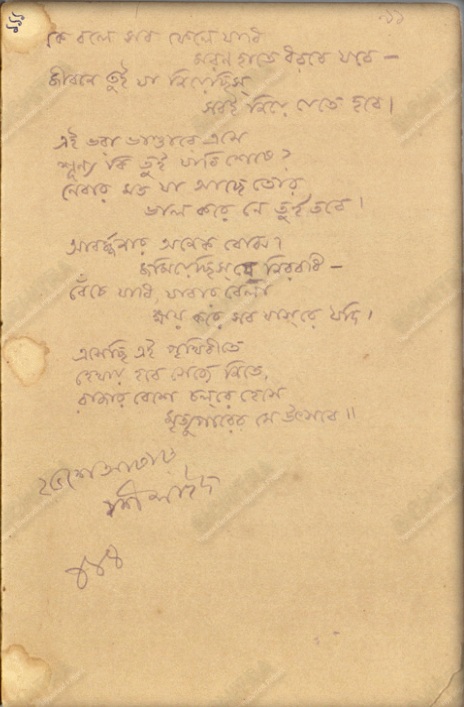 কে বলে সব ফেলে যাবি
মরণ হাতে ধরবে যবে —
জীবনে তুই যা নিয়েছিস্
সবই নিয়ে যেতে হবে।
এই ভরা ভাণ্ডারে এসে
শূন্য কি তুই যাবি শেষে?
নেবার মত যা আছে তোর
ভাল করে নে তুই তবে।
আবর্জ্জনার অনেক বোঝা
জমিয়েছিস্ যে নিরবধি —
বেঁচে যাবি, যাবার বেলা
ক্ষয় করে সব যাস্ রে যদি।
এসেছি এই পৃথিবীতে
হেথায় হবে সেজে নিতে,
রাজার বেশে চল্ রে হেসে
মৃত্যুপারের সে উৎসবে॥
২৫শে আষাঢ়
শিলাইদা